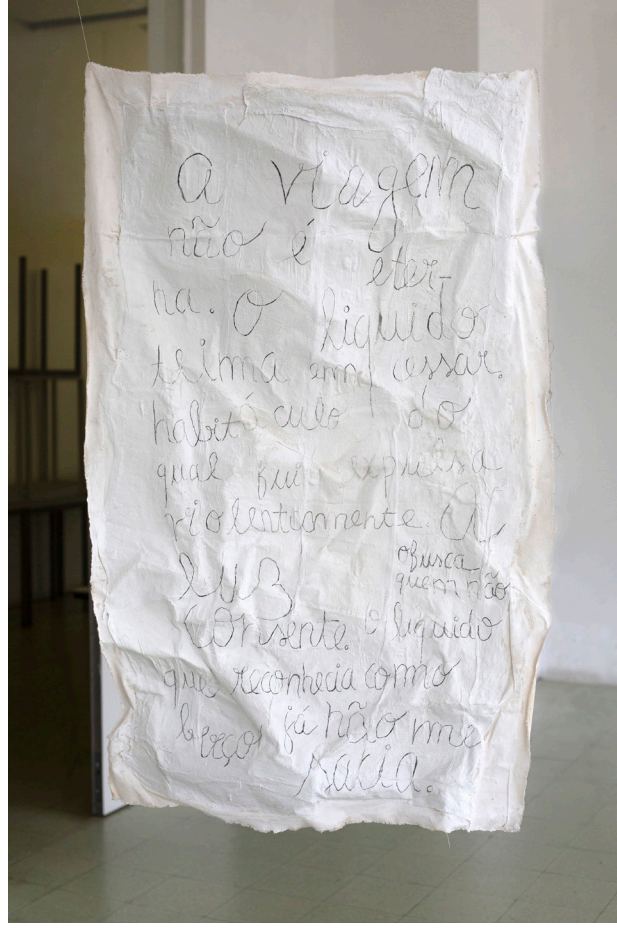 A viagem
não é eter-
na. O liquido
teima em cessar.
habitáculo do
qual fui expulsa
violentamente. A
luz ofusca
quem não
consente. O liquido
que reconhecia como
berço já não me
sacia.